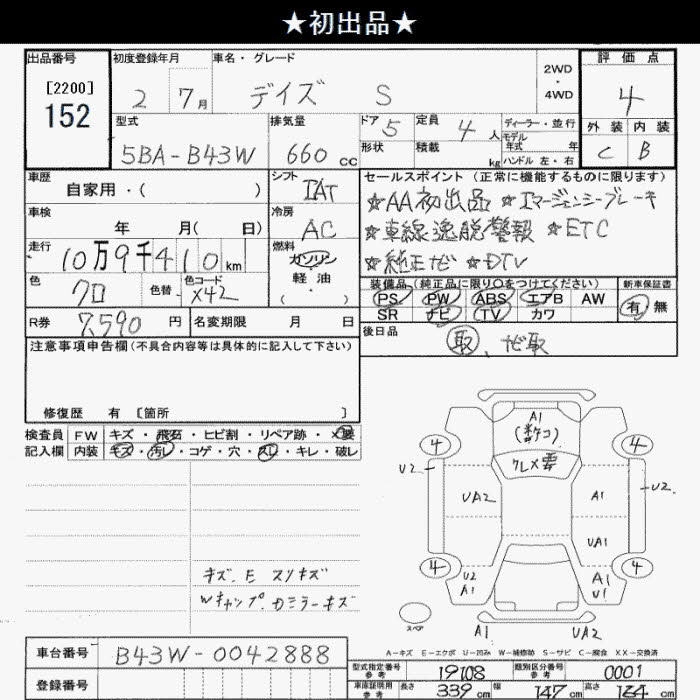 ★初出品★
出品番号
[2200]
152
初度登録年月
2 7月
車名・グレード
デイズ S
2WD
・
4WD
評価点
4
外装 内装
C B
型式
5BA-B43W
排気量
660cc
ドア 5
形状
定員 4人
積載 kg
ディーラー・並行
モデル年式 年
ハンドル 左・右
車歴
自家用・( )
シフト
IAT
車検
年 月( 日)
冷房
AC
走行
10万9千410km
燃料
ガソリン
・
軽油
・
色
クロ
色替
色コード
X42
R券
7,590円
名変期限 月 日
セールスポイント(正常に機能するものに限ります)
☆AA初出品 ☆エマージェンシーブレーキ
☆車線逸脱警報 ☆ETC
☆純正ナビ ☆DTV
装備品(純正品に限り〇をつけてください)
PS PW ABS エアB AW
SR ナビ TV カワ
新車保証書
有 無
後日品
取、ナビ取
注意事項申告欄(不具合内容等は具体的に記入して下さい)
修復歴 有 [箇所 ]
検査員記入欄
FW キズ・飛石・ヒビ割・リペア跡・X要
内装 キズ・汚レ・コゲ・穴・スレ・キレ・破レ
キズ、E スリキズ
Wキャップ、カミラーキズ
A1
クレX要
4
4
U2
U2
UA2
A1
UA1
4
4
U2
A1
A1
U1
スペア
A1
UA2
A-キズ E-エクボ U-凹み W-補修跡 S-サビ C-腐食 XX-交換済
車台番号
B43W-0042888
登録番号
型式指定番号
参考
19108
類別区分番号
参考
0001
車庫証明用
参考
長さ 339cm
幅 147cm
高さ 164cm